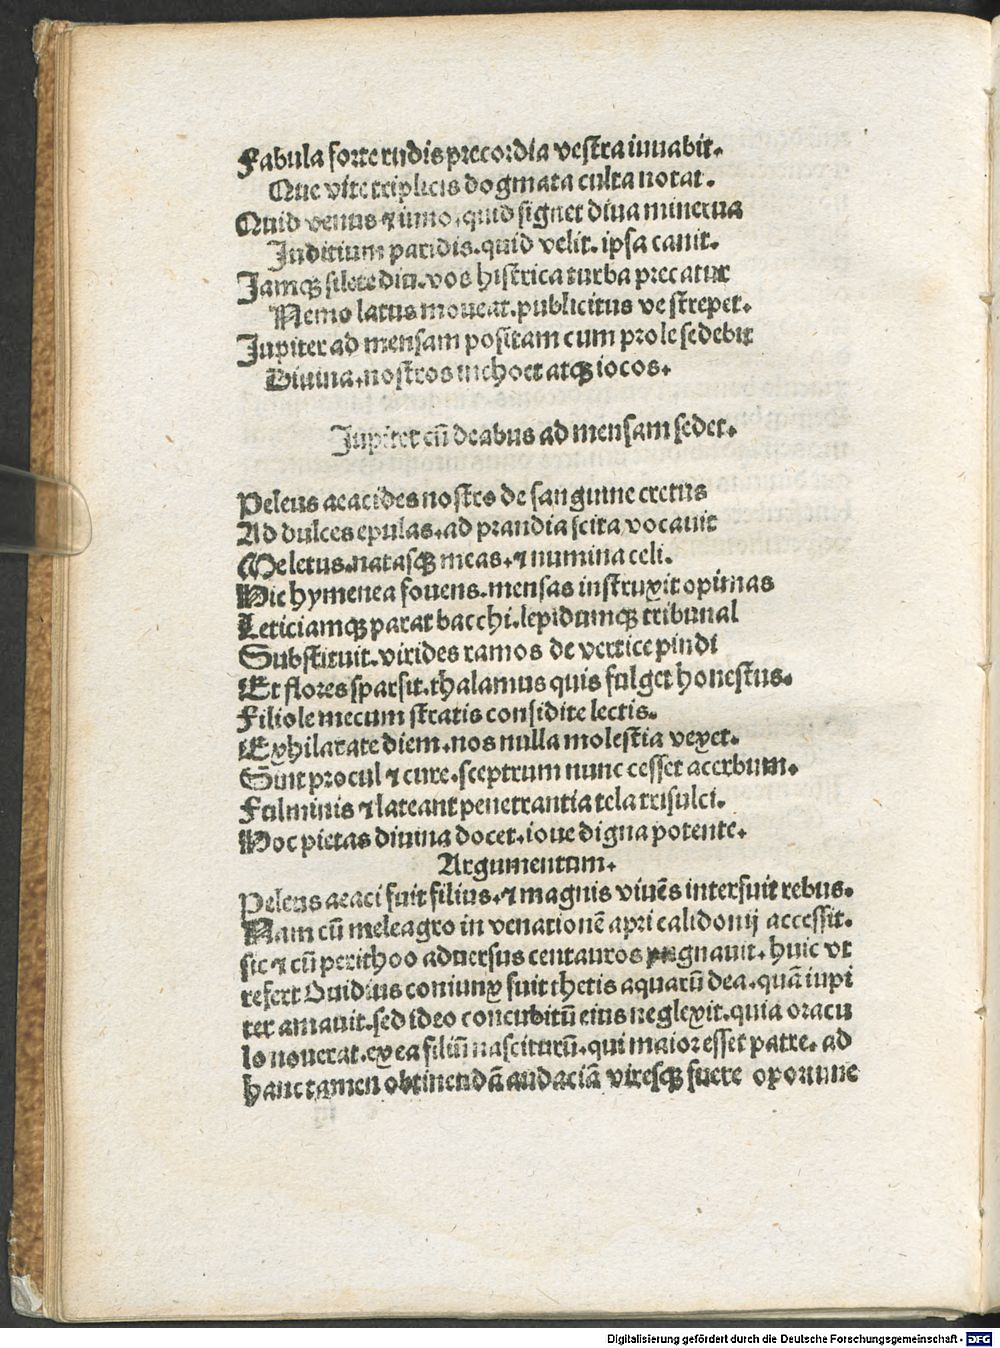 Fabula forte rudis precordia vestra iuuabit.
Que vite triplicis dogmata culta notat.
Quid venus ⁊ iuno. quid signet diua minerua
Juditium paridis. quid velit. ipsa canit.
Jamqȝ silete diu. vos histrica turba precatur
Nemo latus moueat. publicitus ve strepet.
Jupiter ad mensam positam cum prole sedebit
Diuina. nostros inchoet atqȝ iocos.
Jupiter cū deabus ad mensam sedet.
Peleus aeacides nostro de sanguine cretus
Ad dulces epulas. ad prandia scita vocauit
Me letus. natasqȝ meas. ⁊ numina celi.
Hic hymenea fouens. mensas instruxit opimas
Leticiamqȝ parat bacchi. lepidumqȝ tribunal
Substituit. virides ramos de vertice pindi
Et flores sparsit. thalamus quis fulget honestus.
Filiole mecum stratis considite lectis.
Exhilarate diem. nos nulla molestia vexet.
Sint procul ⁊ cure. sceptrum nunc cesset acerbum.
Fulminis ⁊ lateant penetrantia tela trisulci.
Hoc pietas diuina docet. ioue digna potente.
Argumentum.
Peleus aeaci fuit filius. ⁊ magnis viuēs interfuit rebus.
Nam cū meleagro in venationē apri calidonij accessit.
sic ⁊ cū perithoo aduersus centauros pugnauit. huic vt
refert Ouidius coniunx fuit thetis aquarū dea. quā iupi
ter amauit. sed ideo concubitū eius neglexit. quia oracu
lo nouerat. ex ea filiū nasciturū. qui maior esset patre. ad
hanc tamen obtinendā audaciā viresqȝ fuere oportune
Digitalisierung gefördert durch die Deutsche Forschungsgemeinschaft - DFG